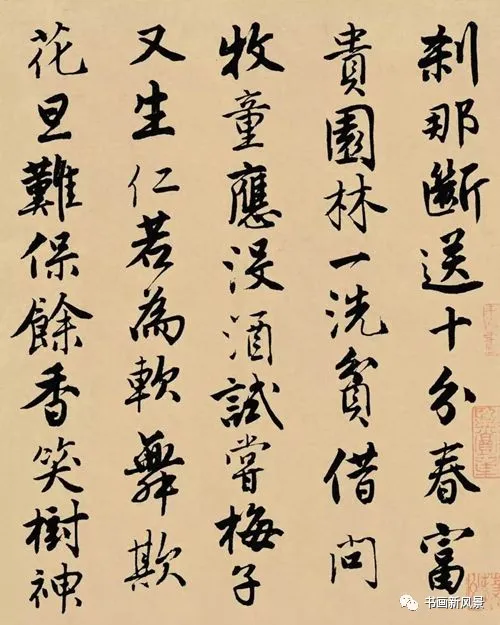 刹那斷送十分春富
貴園林一洗貧借問
牧童應没酒試嘗梅子
又生仁若為軟舞欺
花旦難保餘香笑樹神
书画新风景